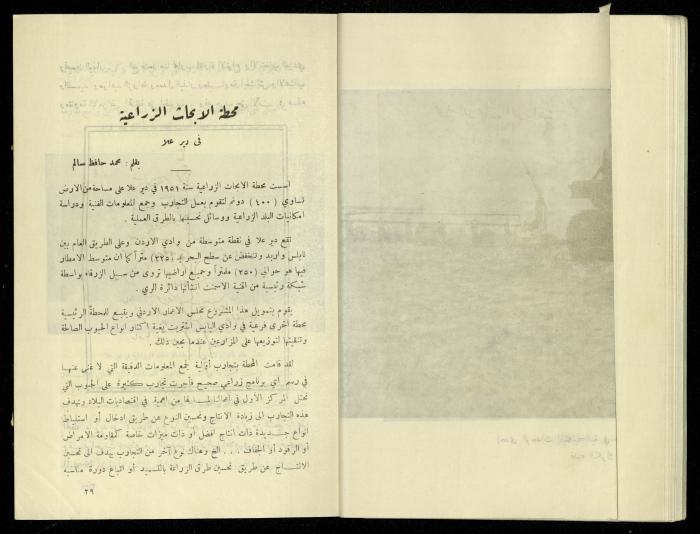 محطة الابحاث الزراعية
في دير علا
بقلم : محمد حافظ سالم
اسست محطة الابحاث الزراعية سنة ١٩٥١ في دير علا على مساحة من الارض
تساوي ( ٤٠٠ ) دونم لتقوم بعمل التجارب وجمع المعلومات الفنية ودراسة
امكانيات البلد الزراعية ووسائل تحسينها بالطرق العملية .
تقع دير علا في نقطة متوسطة من وادي الاردن وعلى الطريق العام بين
نابلس واربد وتنخفض عن سطح البحر بـ (٢٢٥) متراً كما ان متوسط الامطار
فيها هو حوالي (٢٥٠) ملمتراً وجميع اراضيها تروى من سيل الزرقاء بواسطة
شبكة رئيسية من اقنية الاسمنت انشأتها دائرة الري .
يقوم بتمويل هذا المشروع مجلس الاعمار الاردني ويتبع للمحطة الرئيسية
محطة اخرى فرعية في وادي اليابس اشتريت بغية اكثار انواع الحبوب الصالحة
وتنقيتها لتوزيعها على المزارعين عندما يحين ذلك .
لقد قامت المحطة بتجارب أولية لجمع المعلومات الدقيقة التي لا غنى عنها
في رسم أي برنامج زراعي صحيح فأجرت تجارب كثيرة على الحبوب التي
تحتل المركز الأول في أعمالها لما لها من اهمية في اقتصاديات البلاد وتهدف
هذه التجارب الى زيادة الانتاج وتحسين النوع عن طريق ادخال أو استنباط
انواع جديدة ذات انتاج افضل أو ذات ميزات خاصة كمقاومة الامراض
أو الرقود أو الجفاف . . . الخ وهناك نوع آخر من التجارب يهدف الى تحسين
الانتاج عن طريق تحسين طرق الزراعة بالتسميد أو اتباع دورة مناسبة
٢٩